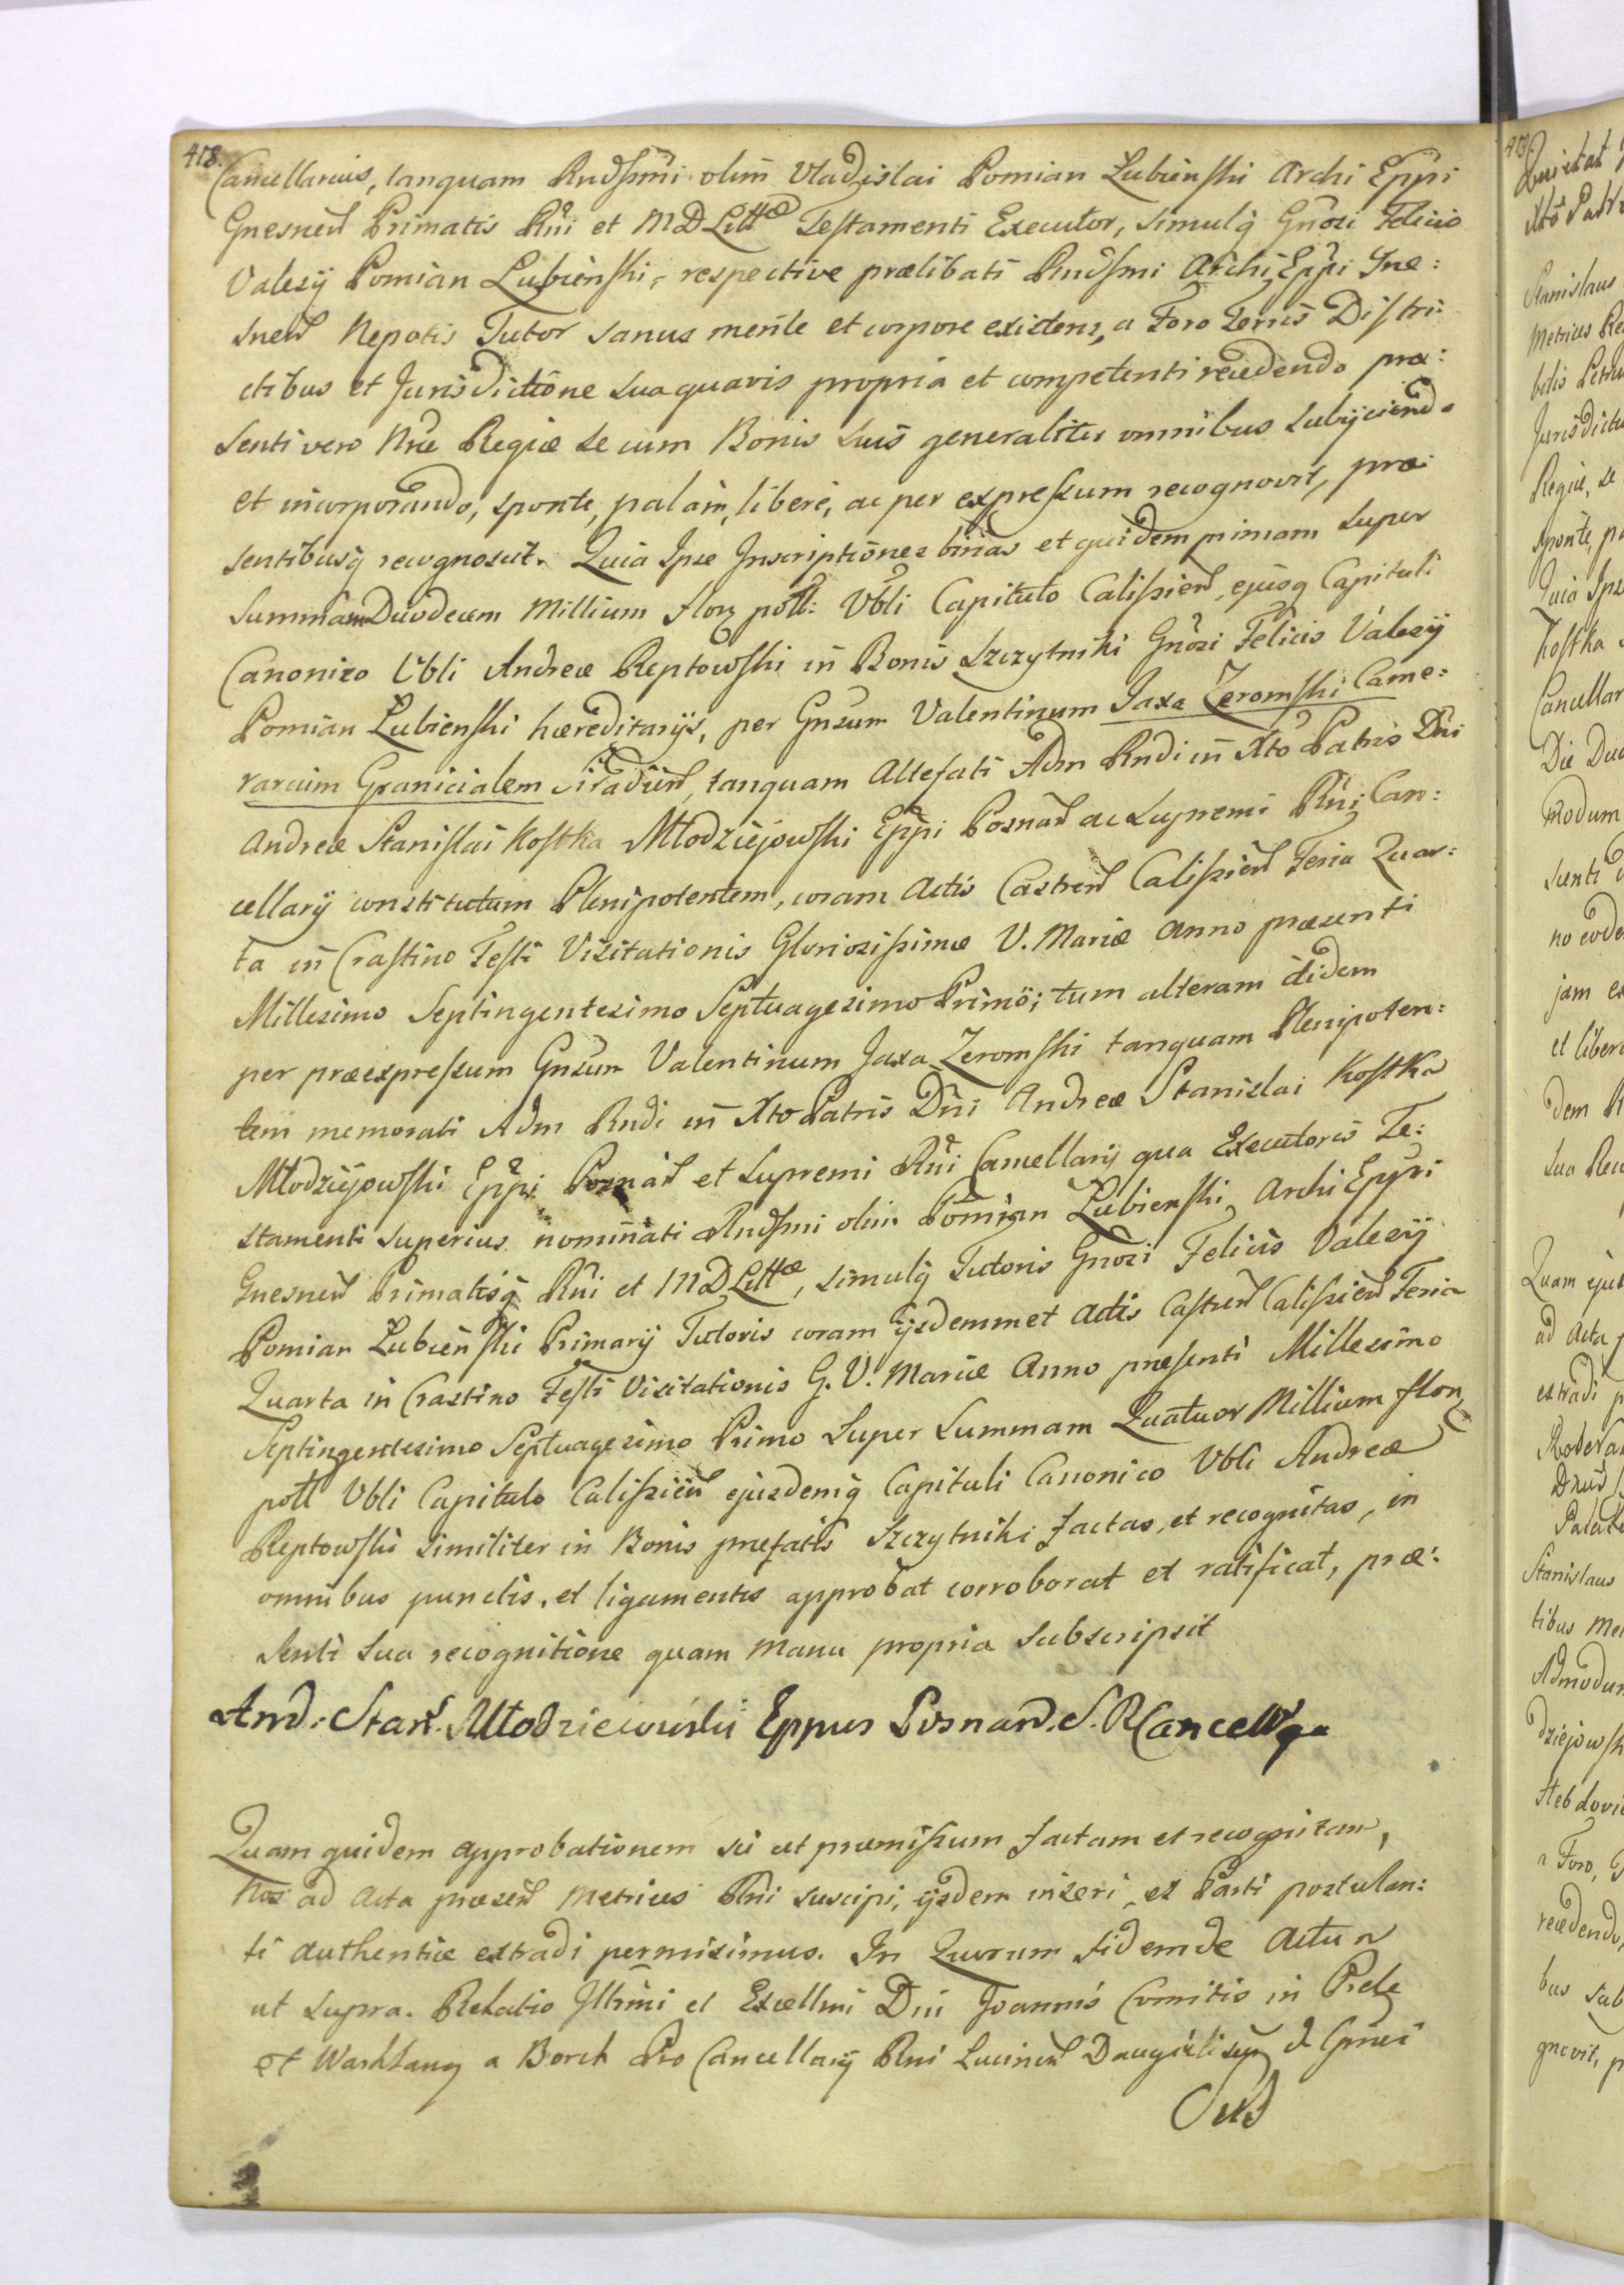 418.
Cancellarius, tanquam Rndssmi olim Vladislai Pomian Łubienski Archi Eppi
Gnesnen Primatis Rni et MD Littæ Testamenti Executor, simulq Gnosi Felicis
Valesij Pomian Łubienski, respective prælibati Rndsmi Archi Eppi Gne:
snen Nepotis Tutor sanus mente et corpore existens, a Foro Terris Distri:
ctibus et Jurisdictione sua quavis propria et competenti recedendo præ:
senti vero Nræ Regiæ se cum Bonis suis generaliter omnibus subijciendo
et incorporando, sponte, palam, libere, ac per expressum recognovit, præ:
sentibusq recognoscit. Quia Ipse Inscriptiones binas et quidem primam super
Summam Duodecim Millium flor poll: Vbli Capitulo Calissien, ejusq Capituli
Canonico Vbli Andreæ Reptowski in Bonis Szczytniki Gnosi Felicis Valesij
Pomian Łubienski hæreditarijs, per Gnsum Valentinum Jaxa Zeromski Came:
rarium Granicialem Siradien, tanquam Altefati Adm Rndi in Xto Patris Dni
Andreæ Stanislai Kostka Młodziejowski Eppi Posnan ac Supremi Rni Can:
cellarij constitutum Plenipotentem, coram Actis Castren Calissien Feria Quar:
ta in Crastino Festi Visitationis Gloriosissimæ V. Mariæ Anno præsenti
Millesimo Septingentesimo Septuagesimo Primo; tum alteram itidem
per præexpressum Gnsum Valentinum Jaxa Zeromski tanquam Plenipoten:
tem memorati Adm Rndi in Xto Patris Dni Andreæ Stanislai Kostka
Młodziejowski Eppi Posnan et Supremi Rni Cancellarij qua Executoris Te:
stamenti superius nominati Rndsmi olim Pomian Łubienski Archi Eppi
Gnesnen Primatisq Rni et MD Littæ, simulq Tutoris Gnosi Felicis Valesij
Pomian Łubienski Primarij Tutoris coram ijsdemmet Actis Castren Calissien Feria
Quarta in Crastino Festi Visitationis G. V. Mariæ Anno præsenti Millesimo
Septingentesimo Septuagesimo Primo Super Summam Quatuor Millium flor
poll Vbli Capitulo Calissien ejusdemq Capituli Canonico Vbli Andreæ
Reptowski similiter in Bonis præfatis Szczytniki factas, et recognitas, in
omnibus punctis, et ligamentis approbat corroborat et ratificat, præ:
senti sua recognitione quam manu propria subscripsit
And: Stan. Młodziewiski Eppus Posnan. S. R Cancell
Quam quidem approbationem sic ut præmissum factam et recognitam,
Nos ad Acta præsen Metrices Rni suscipi, ijsdem inseri, et Parti postulan:
ti authentice extradi permisimus. In Quorum fidem de Actu
ut supra. Relatio Illrmi et Excellmi Dni Joannis Comitis in Prele
et Warkland a Borch Pro Cancellarij Rni Lucinen